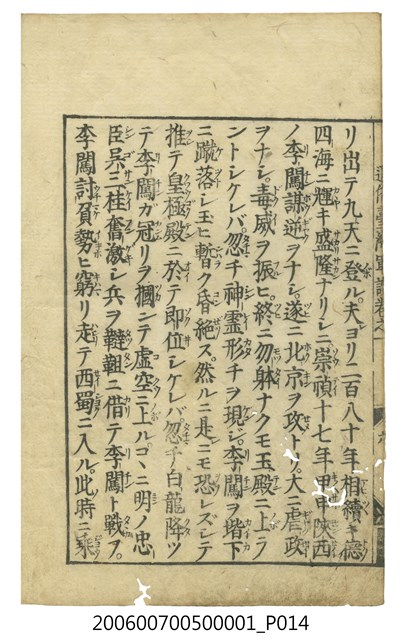 リ出テ九天ニ登ル。夫ヨリ二百八十年相續キ德
四海ニ輝キ盛隆ナリシニ崇禎十七年甲申陝西
ノ李闖謀逆ヲナシ。遂ニ北京ヲ攻トリ。大ニ虐政
ヲナシ。毒威ヲ振ヒ。終ニ勿躰ナクモ玉殿ニ上ラ
ントシケレバ。忽チ神霊形チヲ現シ。李闖ヲ堦下
ニ蹴落シ玉ヒ暫ク昏絶ス。然ルニ是ニモ恐レズシテ
推テ皇極殿ニ於テ即位シケレバ忽チ白龍降ツ
テ李闖ガ冠リヲ摑ンテ虚空ニ上ル。コヽニ明ノ忠
臣呉三桂奮激シ兵ヲ韃靼ニ借テ李闖ト戰フ。
李闖討負勢ヒ窮リ走テ西蜀ニ入ル。此時ニ乘
200600700500001_P014